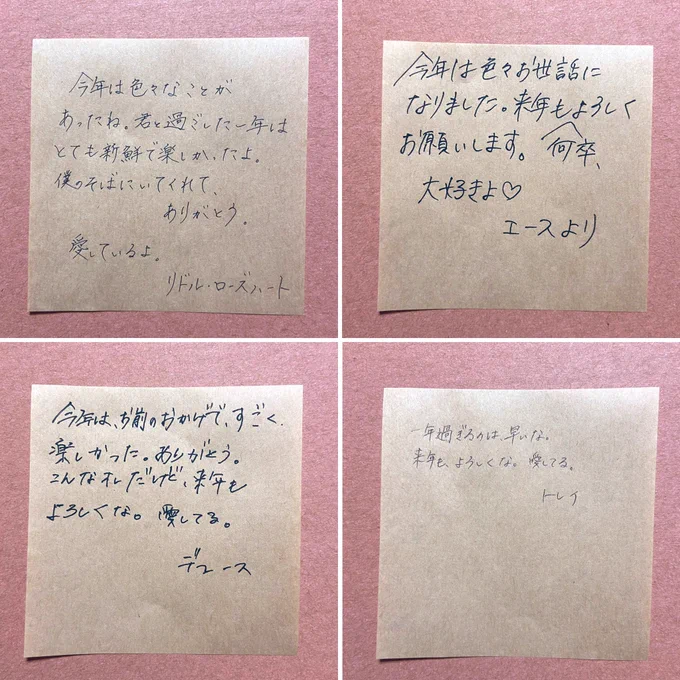 今年は色々なことが
あったね。君と過ごした一年は
とても新鮮で楽しかったよ。
僕のそばにいてくれて、
ありがとう。
愛しているよ。
リドル・ローズハート
今年は色々お世話に
なりました。来年もよろしく
お願いします。何卒、
大好きよ♡
エースより
今年は、お前のおかげで、すごく
楽しかった。ありがとう。
こんなオレだけど、来年も
よろしくな。愛してる。
デュース
一年過ぎるのは、早いな。
来年も、よろしくな。愛してる。
トレイ